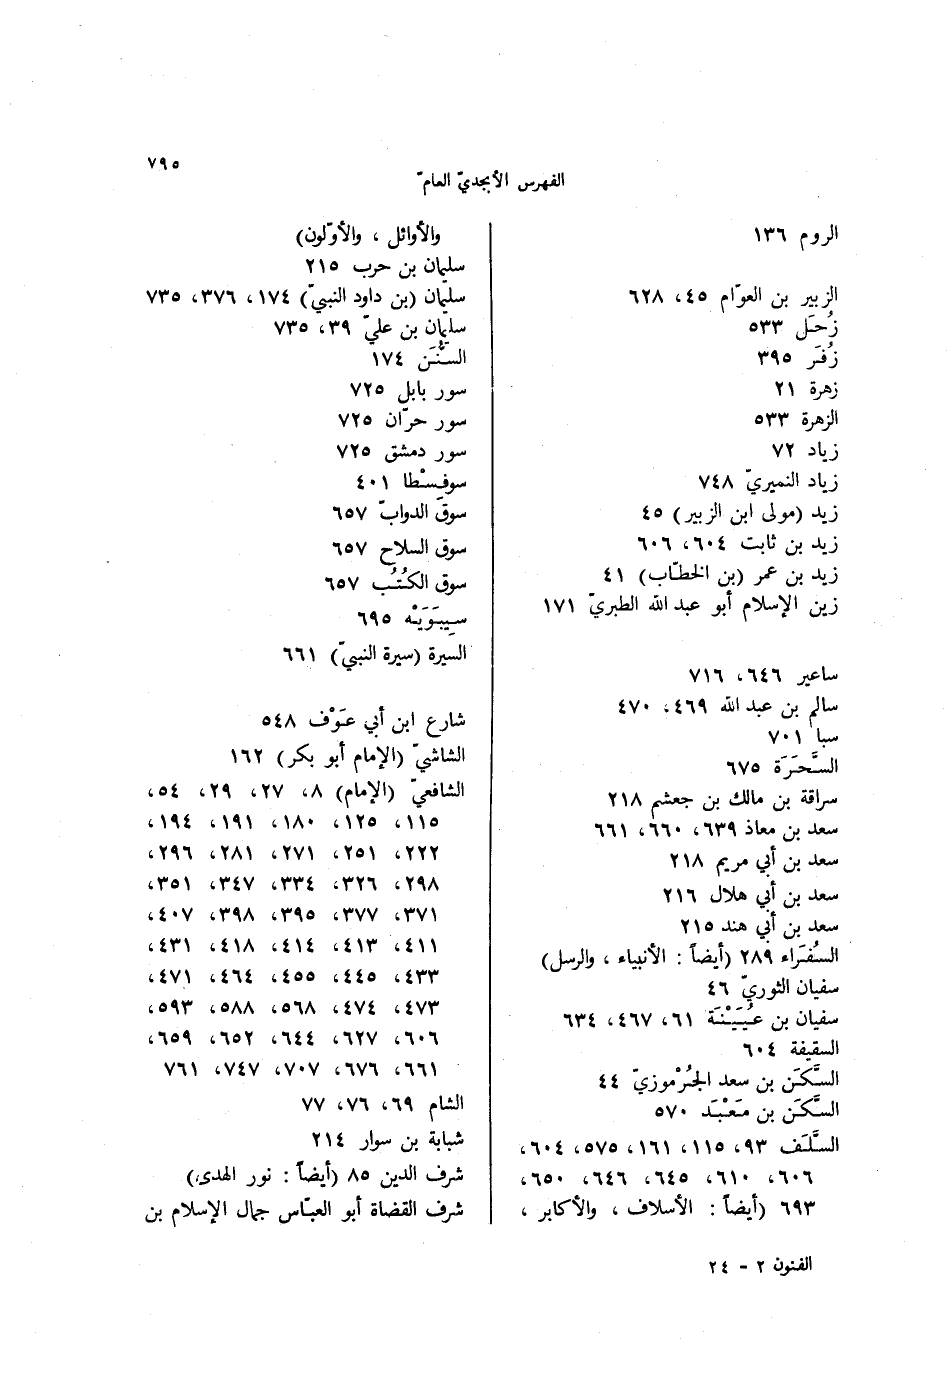 ٧٩٥
الفهرس الأبجديّ العامّ
الروم ١٣٦
الزبير بن العوّام ٤٥، ٦٢٨
زُحَل ٥٣٣
زُفَر ٣٩٥
زهرة ٢١
الزهرة ٥٣٣
زياد ٧٢
زياد النميريّ ٧٤٨
زيد (مولى ابن الزبير) ٤٥
زيد بن ثابت ٦٠٤، ٦٠٦
زيد بن عمر (بن الخطّاب) ٤١
زين الإسلام أبو عبد الله الطبريّ ١٧١
ساعير ٦٤٦، ٧١٦
سالم بن عبد الله ٤٦٩، ٤٧٠
سبا ٧٠١
السَّحَرَة ٦٧٥
سراقة بن مالك بن جعشم ٢١٨
سعد بن معاذ ٦٣٩، ٦٦٠، ٦٦١
سعد بن أبي مريم ٢١٨
سعد بن أبي هلال ٢١٦
سعد بن أبي هند ٢١٥
السُفَراء ٢٨٩ (أيضاً : الأنبياء ، والرسل)
سفيان الثوريّ ٤٦
سفيان بن عُيَيْنَة ٦١، ٤٦٧، ٦٣٤
السقيفة ٦٠٤
السَّكَن بن سعد الجُرْموزيّ ٤٤
السَّكَن بن مَعْبَد ٥٧٠
السَّلَف ٩٣، ١١٥، ١٦١، ٥٧٥، ٦٠٤،
٦٠٦، ٦١٠، ٦٤٥، ٦٤٦، ٦٥٠،
٦٩٣ (أيضاً : الأسلاف ، والأكابر ،
والأوائل ، والأوّلون)
سليمان بن حرب ٢١٥
سليمان (بن داود النبيّ) ١٧٤، ٣٧٦، ٧٣٥
سليمان بن عليّ ٣٩، ٧٣٥
السُّنَن ١٧٤
سور بابل ٧٢٥
سور حرّان ٧٢٥
سور دمشق ٧٢٥
سوفِسْطا ٤٠١
سوق الدوابّ ٦٥٧
سوق السلاح ٦٥٧
سوق الكُتُب ٦٥٧
سِيبَوَيْه ٦٩٥
السيرة (سيرة النبيّ) ٦٦١
شارع ابن أبي عَوْف ٥٤٨
الشاشيّ (الإمام أبو بكر) ١٦٢
الشافعيّ (الإمام) ٨، ٢٧، ٢٩، ٥٤،
١١٥، ١٢٥، ١٨٠، ١٩١، ١٩٤،
٢٢٢، ٢٥١، ٢٧١، ٢٨١، ٢٩٦،
٢٩٨، ٣٢٦، ٣٣٤، ٣٤٧، ٣٥١،
٣٧١، ٣٧٧، ٣٩٥، ٣٩٨، ٤٠٧،
٤١١، ٤١٣، ٤١٤، ٤١٨، ٤٣١،
٤٣٣، ٤٤٥، ٤٥٥، ٤٦٤، ٤٧١،
٤٧٣، ٤٧٤، ٥٦٨، ٥٨٨، ٥٩٣،
٦٠٦، ٦٢٧، ٦٤٤، ٦٥٢، ٦٥٩،
٦٦١، ٦٧٦، ٧٠٧، ٧٤٧، ٧٦١
الشام ٦٩، ٧٦، ٧٧
شبابة بن سوار ٢١٤
شرف الدين ٨٥ (أيضاً : نور الهدى)
شرف القضاة أبو العبّاس جمال الإسلام بن
الفنون ٢ - ٢٤